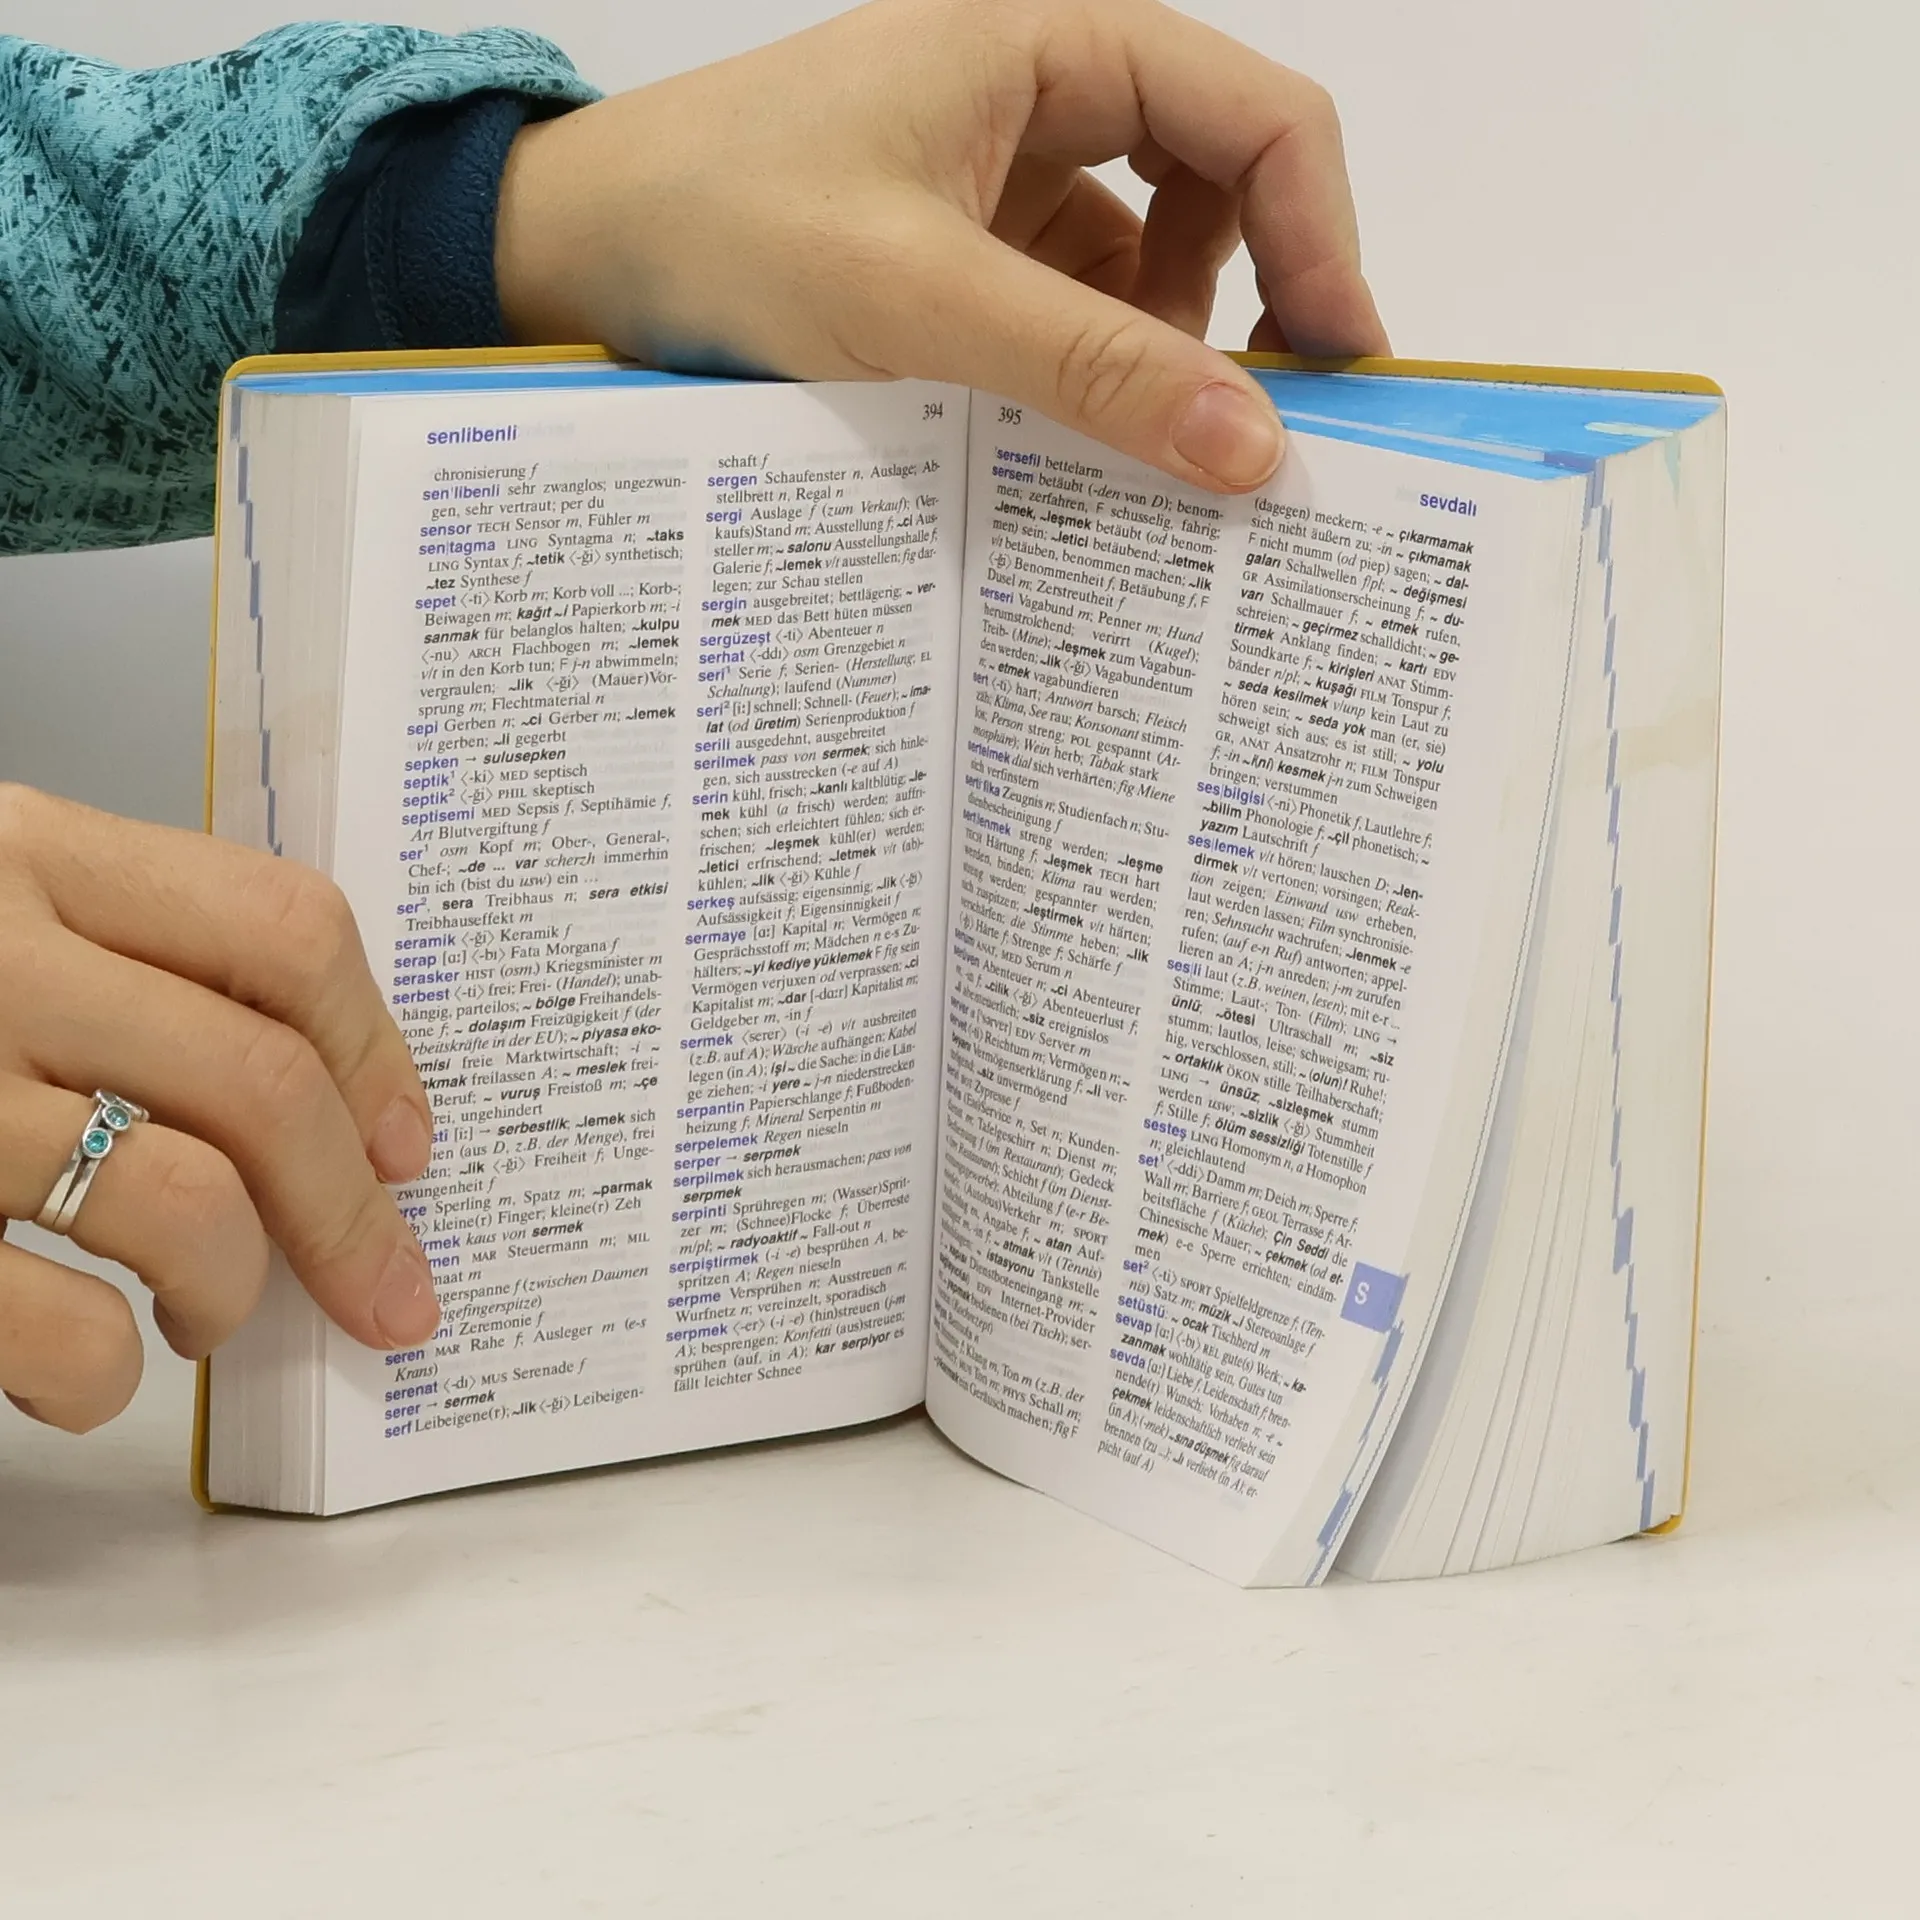 394
senlibenli
chronisierung f
sen'libenli sehr zwanglos; ungezwun-
gen, sehr vertraut; per du
sensor TECH Sensor m, Fühler m
sen|tagma LING Syntagma n; ~taks
LING Syntax f; ~tetik ⟨-ği⟩ synthetisch;
~tez Synthese f
sepet ⟨-ti⟩ Korb m; Korb voll ...; Korb-;
Beiwagen m; kağıt ~i Papierkorb m; -i
sanmak für belanglos halten; ~kulpu
⟨-nu⟩ ARCH Flachbogen m; ~lemek
v/t in den Korb tun; F j-n abwimmeln;
vergraulen; ~lik ⟨-ği⟩ (Mauer)Vor-
sprung m; Flechtmaterial n
sepi Gerben n; ~ci Gerber m; ~lemek
v/t gerben; ~li gegerbt
sepken → sulusepken
septik¹ ⟨-ki⟩ MED septisch
septik² ⟨-ği⟩ PHIL skeptisch
septisemi MED Sepsis f, Septihämie f,
Art Blutvergiftung f
ser¹ osm Kopf m; Ober-, General-,
Chef-; ~de ... var scherzh immerhin
bin ich (bist du usw) ein ...
ser², sera Treibhaus n; sera etkisi
Treibhauseffekt m
seramik ⟨-ği⟩ Keramik f
serap [ɑː] ⟨-bı⟩ Fata Morgana f
serasker HIST (osm.) Kriegsminister m
serbest ⟨-ti⟩ frei; Frei- (Handel); unab-
hängig, parteilos; ~ bölge Freihandels-
zone f; ~ dolaşım Freizügigkeit f (der
rbeitskräfte in der EU); ~ piyasa eko-
misi freie Marktwirtschaft; -i ~
akmak freilassen A; ~ meslek frei-
Beruf; ~ vuruş Freistoß m; ~çe
frei, ungehindert
sti [iː] → serbestlik; ~lemek sich
ien (aus D, z.B. der Menge), frei
den; ~lik ⟨-ği⟩ Freiheit f; Unge-
zwungenheit f
rçe Sperling m, Spatz m; ~parmak
kleine(r) Finger; kleine(r) Zeh
rmek kaus von sermek
men MAR Steuermann m; MIL
maat m
gerspanne f (zwischen Daumen
eigefingerspitze)
oni Zeremonie f
seren MAR Rahe f; Ausleger m (e-s
Krans)
serenat ⟨-dı⟩ MUS Serenade f
serer → sermek
serf Leibeigene(r); ~lik ⟨-ği⟩ Leibeigen-
schaft f
sergen Schaufenster n, Auslage; Ab-
stellbrett n, Regal n
sergi Auslage f (zum Verkauf); (Ver-
kaufs)Stand m; Ausstellung f; ~ci Aus-
steller m; ~ salonu Ausstellungshalle f,
Galerie f; ~lemek v/t ausstellen; fig dar-
legen; zur Schau stellen
sergin ausgebreitet; bettlägerig; ~ ver-
mek MED das Bett hüten müssen
sergüzeşt ⟨-ti⟩ Abenteuer n
serhat ⟨-ddı⟩ osm Grenzgebiet n
seri¹ Serie f; Serien- (Herstellung, EL
Schaltung); laufend (Nummer)
seri² [iː] schnell; Schnell- (Feuer); ~ ima-
lat (od üretim) Serienproduktion f
serili ausgedehnt, ausgebreitet
serilmek pass von sermek; sich hinle-
gen, sich ausstrecken (-e auf A)
serin kühl, frisch; ~kanlı kaltblütig; ~le-
mek kühl (a frisch) werden; auffri-
schen; sich erleichtert fühlen; sich er-
frischen; ~leşmek kühl(er) werden;
~letici erfrischend; ~letmek v/t (ab)-
kühlen; ~lik ⟨-ği⟩ Kühle f
serkeş aufsässig; eigensinnig; ~lik ⟨-ği⟩
Aufsässigkeit f; Eigensinnigkeit f
sermaye [ɑː] Kapital n; Vermögen n;
Gesprächsstoff m; Mädchen n e-s Zu-
hälters; ~yi kediye yüklemek F fig sein
Vermögen verjuxen od verprassen; ~ci
Kapitalist m; ~dar [-dɑːr] Kapitalist m;
Geldgeber m, -in f
sermek ⟨serer⟩ (-i -e) v/t ausbreiten
(z.B. auf A); Wäsche aufhängen; Kabel
legen (in A); işi ~ die Sache in die Län-
ge ziehen; -i yere ~ j-n niederstrecken
serpantin Papierschlange f; Fußboden-
heizung f; Mineral Serpentin m
serpelemek Regen nieseln
serper → serpmek
serpilmek sich herausmachen; pass von
serpmek
serpinti Sprühregen m; (Wasser)Sprit-
zer m; (Schnee)Flocke f; Überreste
m/pl; ~ radyoaktif ~ Fall-out n
serpiştirmek (-i -e) besprühen A, be-
spritzen A; Regen nieseln
serpme Versprühen n; Ausstreuen n;
Wurfnetz n; vereinzelt, sporadisch
serpmek ⟨-er⟩ (-i -e) (hin)streuen (j-m
A); besprengen; Konfetti (aus)streuen;
sprühen (auf, in A); kar serpiyor es
fällt leichter Schnee
395
sevdalı
'sersefil bettelarm
sersem betäubt (-den von D); benom-
men; zerfahren, F schusselig, fahrig;
~lemek, ~leşmek betäubt (od benom-
men) sein; ~letici betäubend; ~letmek
v/t betäuben, benommen machen; ~lik
⟨-ği⟩ Benommenheit f, Betäubung f, F
Dusel m; Zerstreutheit f
serseri Vagabund m; Penner m; Hund
herumstrolchend; verirrt (Kugel);
Treib- (Mine); ~leşmek zum Vagabun-
den werden; ~lik ⟨-ği⟩ Vagabundentum
n; ~ etmek vagabundieren
sert ⟨-ti⟩ hart; Antwort barsch; Fleisch
zäh; Klima, See rau; Konsonant stimm-
los; Person streng; POL gespannt (At-
mosphäre); Wein herb; Tabak stark
sertelmek dial sich verhärten; fig Miene
sich verfinstern
serti'fika Zeugnis n; Studienfach n; Stu-
dienbescheinigung f
sert|lenmek streng werden; ~leşme
TECH Härtung f; ~leşmek TECH hart
werden, binden; Klima rau werden;
streng werden; gespannter werden,
sich zuspitzen; ~leştirmek v/t härten;
verschärfen; die Stimme heben; ~lik
⟨-ği⟩ Härte f; Strenge f; Schärfe f
serum ANAT, MED Serum n
serüven Abenteuer n; ~ci Abenteurer
m, -in f; ~cilik ⟨-ği⟩ Abenteuerlust f;
~li abenteuerlich; ~siz ereignislos
server a ['særvər] EDV Server m
servet ⟨-ti⟩ Reichtum m; Vermögen n; ~
beyanı Vermögenserklärung f; ~li ver-
mögend; ~siz unvermögend
servi BOT Zypresse f
servis (Ess)Service n, Set n; Kunden-
dienst m; Tafelgeschirr n; Dienst m;
Bedienung f (im Restaurant); Gedeck
(im Restaurant); Schicht f (im Dienst-
leistungsgewerbe); Abteilung f (e-r Be-
hörde); (Autobus)Verkehr m; SPORT
Aufschlag m, Angabe f; ~ atan Auf-
schläger m, -in f; ~ atmak v/t (Tennis)
aufschlagen; ~ istasyonu Tankstelle
f; ~ kapısı Dienstboteneingang m; ~
sağlayıcı(sı) EDV Internet-Provider
m; ~ yapmak bedienen (bei Tisch); ser-
vieren
ses Stimme f; Klang m, Ton m (z.B. der
Trommel); MUS Ton m; PHYS Schall m;
~ çıkarmak ein Geräusch machen; fig F
(dagegen) meckern; -e ~ çıkarmamak
sich nicht äußern zu; -in ~ çıkmamak
F nicht mumm (od piep) sagen; ~ dal-
gaları Schallwellen f/pl; ~ değişmesi
GR Assimilationserscheinung f; ~ du-
varı Schallmauer f; ~ etmek rufen,
schreien; ~ geçirmez schalldicht; ~ ge-
tirmek Anklang finden; ~ kartı EDV
Soundkarte f; ~ kirişleri ANAT Stimm-
bänder n/pl; ~ kuşağı FILM Tonspur f;
~ seda kesilmek v/unp kein Laut zu
hören sein; ~ seda yok man (er, sie)
schweigt sich aus; es ist still; ~ yolu
GR, ANAT Ansatzrohr n; FILM Tonspur
f; -in ~i(ni) kesmek j-n zum Schweigen
bringen; verstummen
ses|bilgisi ⟨-ni⟩ Phonetik f, Lautlehre f;
~bilim Phonologie f; ~çil phonetisch; ~
yazım Lautschrift f
ses|lemek v/t hören; lauschen D; ~len-
dirmek v/t vertonen; vorsingen; Reak-
tion zeigen; Einwand usw erheben,
laut werden lassen; Film synchronisie-
ren; Sehnsucht wachrufen; ~lenmek -e
rufen; (auf e-n Ruf) antworten; appel-
lieren an A; j-n anreden; j-m zurufen
ses|li laut (z.B. weinen, lesen); mit e-r ...
Stimme; Laut-; Ton- (Film); LING →
ünlü; ~ötesi Ultraschall m; ~siz
stumm; lautlos, leise; schweigsam; ru-
hig, verschlossen, still; ~ (olun)! Ruhe!;
~ ortaklık ÖKON stille Teilhaberschaft;
LING → ünsüz; ~sizleşmek stumm
werden usw; ~sizlik ⟨-ği⟩ Stummheit
f; Stille f; ölüm sessizliği Totenstille f
sesteş LING Homonym n, a Homophon
n; gleichlautend
set¹ ⟨-ddi⟩ Damm m; Deich m; Sperre f,
Wall m; Barriere f; GEOL Terrasse f; Ar-
beitsfläche f (Küche); Çin Seddi die
Chinesische Mauer; ~ çekmek (od et-
mek) e-e Sperre errichten; eindäm-
men
set² ⟨-ti⟩ SPORT Spielfeldgrenze f; (Ten-
nis) Satz m; müzik ~i Stereoanlage f
setüstü: ~ ocak Tischherd m
sevap [ɑː] ⟨-bı⟩ REL gute(s) Werk; ~ ka-
zanmak wohltätig sein, Gutes tun
sevda [ɑː] Liebe f, Leidenschaft f; bren-
nende(r) Wunsch; Vorhaben n; -e ~
çekmek leidenschaftlich verliebt sein
(in A); (-mek) ~sına düşmek fig darauf
brennen (zu ...); ~lı verliebt (in A); er-
picht (auf A)
S